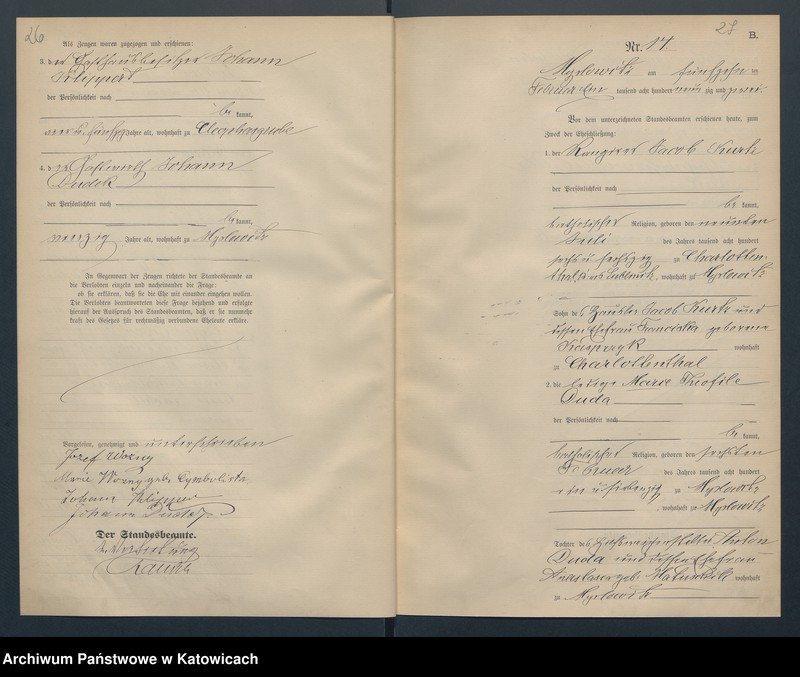 26
Als Zeugen waren zugezogen und erschienen:
3. der Gasthausbesitzer Johann
Klippert
der Persönlichkeit nach
be kannt,
vier u. fünfzig Jahre alt, wohnhaft zu
4. der Gastwirth Johann
Dudek
der Persönlichkeit nach
be kannt,
vierzig Jahre alt, wohnhaft zu Myslowitz
In Gegenwart der Zeugen richtete der Standesbeamte an
die Verlobten einzeln und nacheinander die Frage:
ob sie erklären, daß sie die Ehe mit einander eingehen wollen.
Die Verlobten beantworteten diese Frage bejahend und erfolgte
hierauf der Ausspruch des Standesbeamten, daß er sie nunmehr
kraft des Gesetzes für rechtmäßig verbundene Eheleute erkläre.
Vorgelesen, genehmigt und unterschrieben
Józef Wozny
Marie Wozny geb. Cymbolista
Johann
Johann Dudek
Der Standesbeamte.
In Vertretung
28
B.
Nr. 17
Myslowitz am fünfzehn ten
Februar tausend acht hundert neun zig und zwei
Vor dem unterzeichneten Standesbeamten erschienen heute, zum
Zweck der Eheschließung:
1. der Rangirer Jacob Kurtz
der Persönlichkeit nach
be kannt,
katholischer Religion, geboren den neunten
Juli des Jahres tausend acht hundert
sechs u. sechszig zu Charlotten-
thal Kreis Lublinitz, wohnhaft zu Myslowitz
Sohn des Häusler Jacob Kurtz und
dessen Ehefrau Franciska geborene
Kasprzyk wohnhaft
zu Charlottenthal
2. die ledige Marie Theofile
Duda
der Persönlichkeit nach
be kannt,
katholischer Religion, geboren den sechsten
Februar des Jahres tausend acht hundert
ein u. siebenzig zu Myslowitz
, wohnhaft zu Myslowitz
Tochter des Anton
Duda und dessen Ehefrau
Anastasia geb. wohnhaft
zu Myslowitz
Archiwum Państwowe w Katowicach